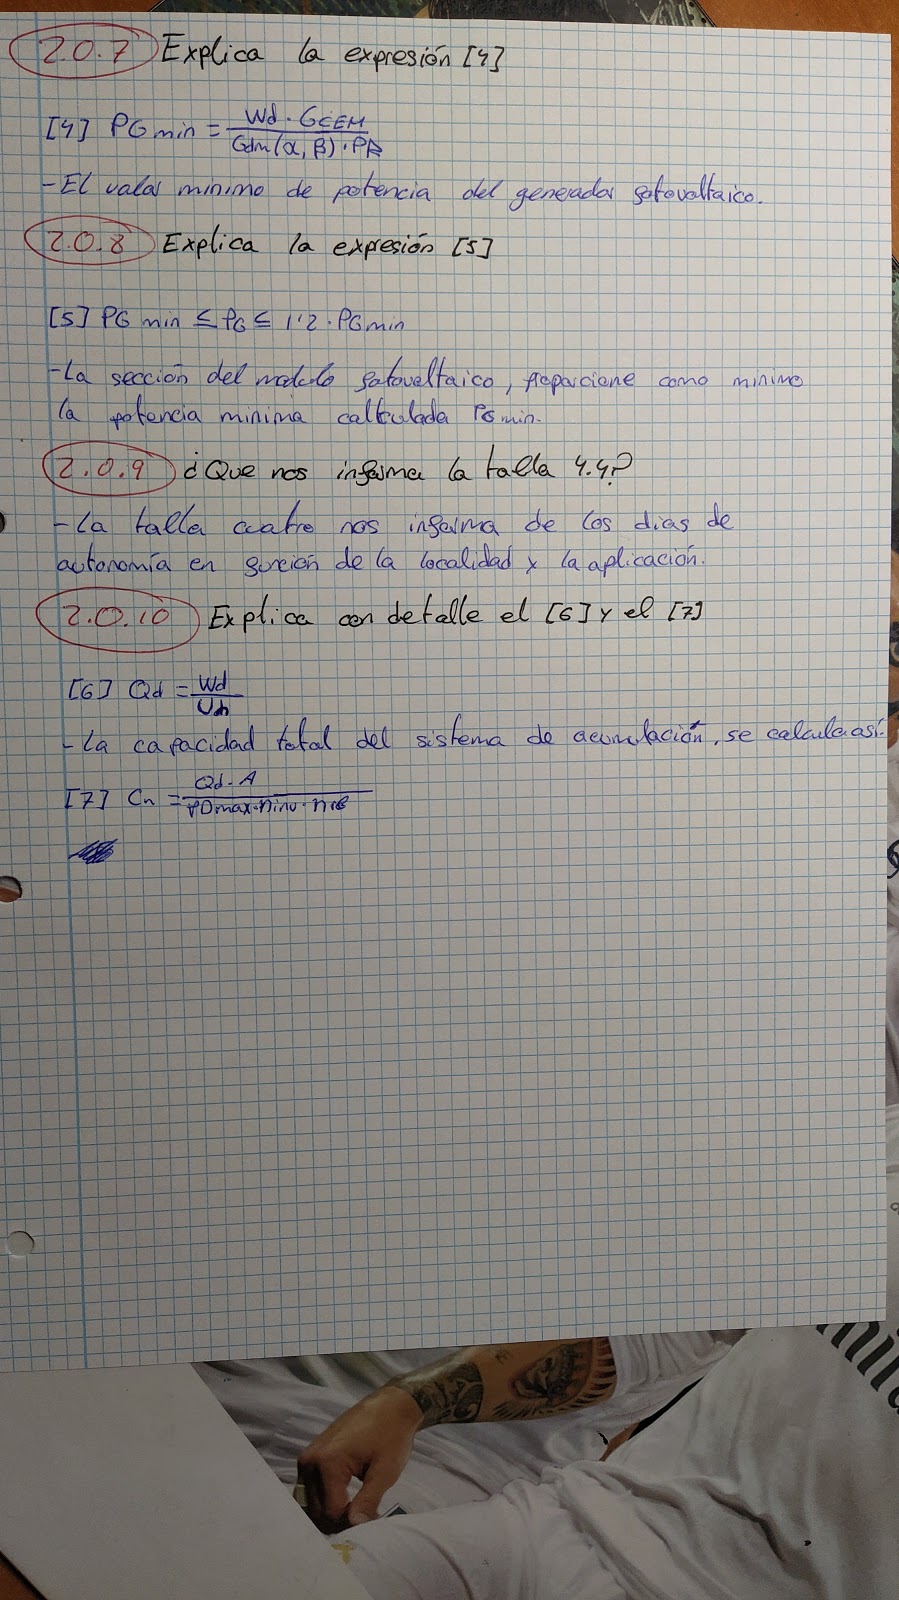 2.0.7 Explica la expresión [4]
[4] PG min = Wd · GCEM / Gdm(α, β) · PR
- El valor minimo de potencia del generador fotovoltaico.
2.0.8 Explica la expresión [5]
[5] PG min ≤ PG ≤ 1'2 · PG min
- La sección del modulo fotovoltaico, proporcione como minimo
la potencia minima calculada PG min.
2.0.9 ¿Que nos informa la talla 4.4?
- La talla cuatro nos informa de los dias de
autonomía en función de la localidad y la aplicación.
2.0.10 Explica con detalle el [6] y el [7]
[6] Qd = Wd / Un
- La capacidad total del sistema de acumulación, se calcula así.
[7] Cn = Qd · A / PDmax · ninv · nrb